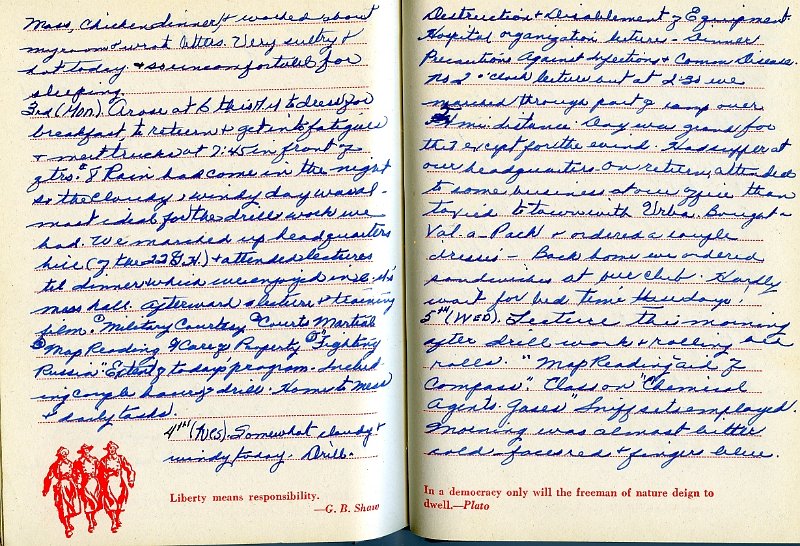 Mass, Chicken dinner, & worked about
my room & wrote letters. Very sultry &
hot today & so uncomfortable for
sleeping.
3rd (Mon). Arose at 6 this A.M to dress for
breakfast to return & get into fatigues
& meet trucks at 7:45 in front of
qtrs. 8 Rain had come in the night
so the cloudy, windy day was al-
most ideal for the drill work we
had. We marched up headquarters
hill (of the 22 G.H.) & attended lectures
til dinner which we enjoyed in
mess hall. Afterward a lecture & training
film. "Military Courtesy "Courts Martial
"Map Reading "Care of Property "Fighting
Russia" Extent of today's program. Includ-
ing couple hours of drill. Home to mess
& daily tasks.
4th (Tues). Somewhat cloudy &
windy today. Drill.
Liberty means responsibility.
—G. B. Shaw
Destruction & Disablement of Equipment.
Hospital organization lecture - Dinner
Precautions Against Infections & Common Disease.
No 2 o'clock lecture but at 2:30 we
marched through part of camp over
mi distance. Day was grand for
the 7 except for the wind. Had supper at
our headquarters. On return, attended
to some business at our office then
taxied to town with Urba. Bought a
Val-a-Pack & ordered a couple
dresses - Back home we ordered
sandwiches at our club. Hardly
wait for bed time these days.
5th (Wed). Lecture this morning
after drill work & rolling bed
rolls. "Map Reading - aid of
Compass". Class on "Chemical
Agents. Gases" Sniff sets employed.
Morning was almost bitter
cold - faces red & fingers blue.
In a democracy only will the freeman of nature deign to
dwell.—Plato